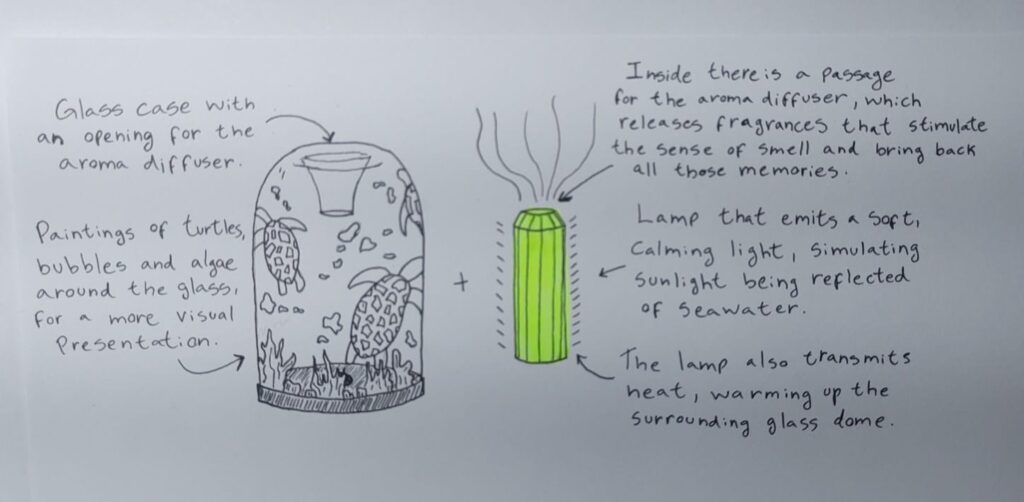 Glass case with
an opening for the
aroma diffuser.
Paintings of turtles,
bubbles and algae
around the glass,
for a more visual
Presentation.
+
Inside there is a passage
for the aroma diffuser, which
releases fragrances that stimulate
the sense of smell and bring back
all those memories.
Lamp that emits a soft,
calming light, simulating
sunlight being reflected
of seawater.
The lamp also transmits
heat, warming up the
surrounding glass dome.